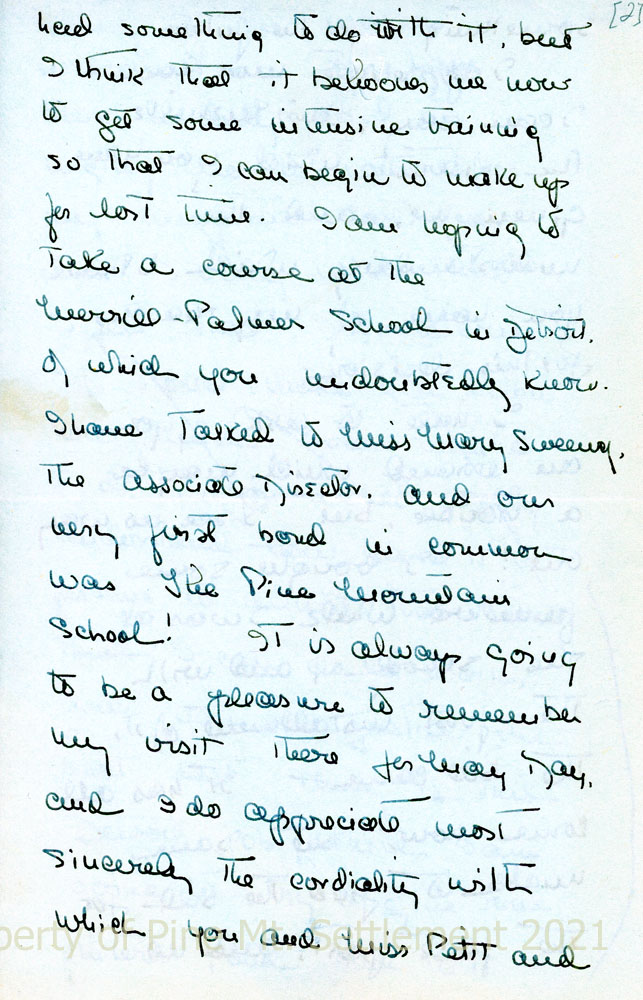 [2]
had something to do with it, but
I think that it behooves me now
to get some intensive training
so that I can begin to make up
for lost time. I am hoping to
take a course at the
Merrill-Palmer School in Detroit,
of which you undoubtedly know.
I have talked to Miss Mary Sweeny,
the associate Director, and our
very first bond in common
was The Pine Mountain
School! It is always going
to be a pleasure to remember
my visit there for May Day,
and I do appreciate most
sincerely the cordiality with
which you and Miss Petit and
perty of Pine Mt. Settlement 2021